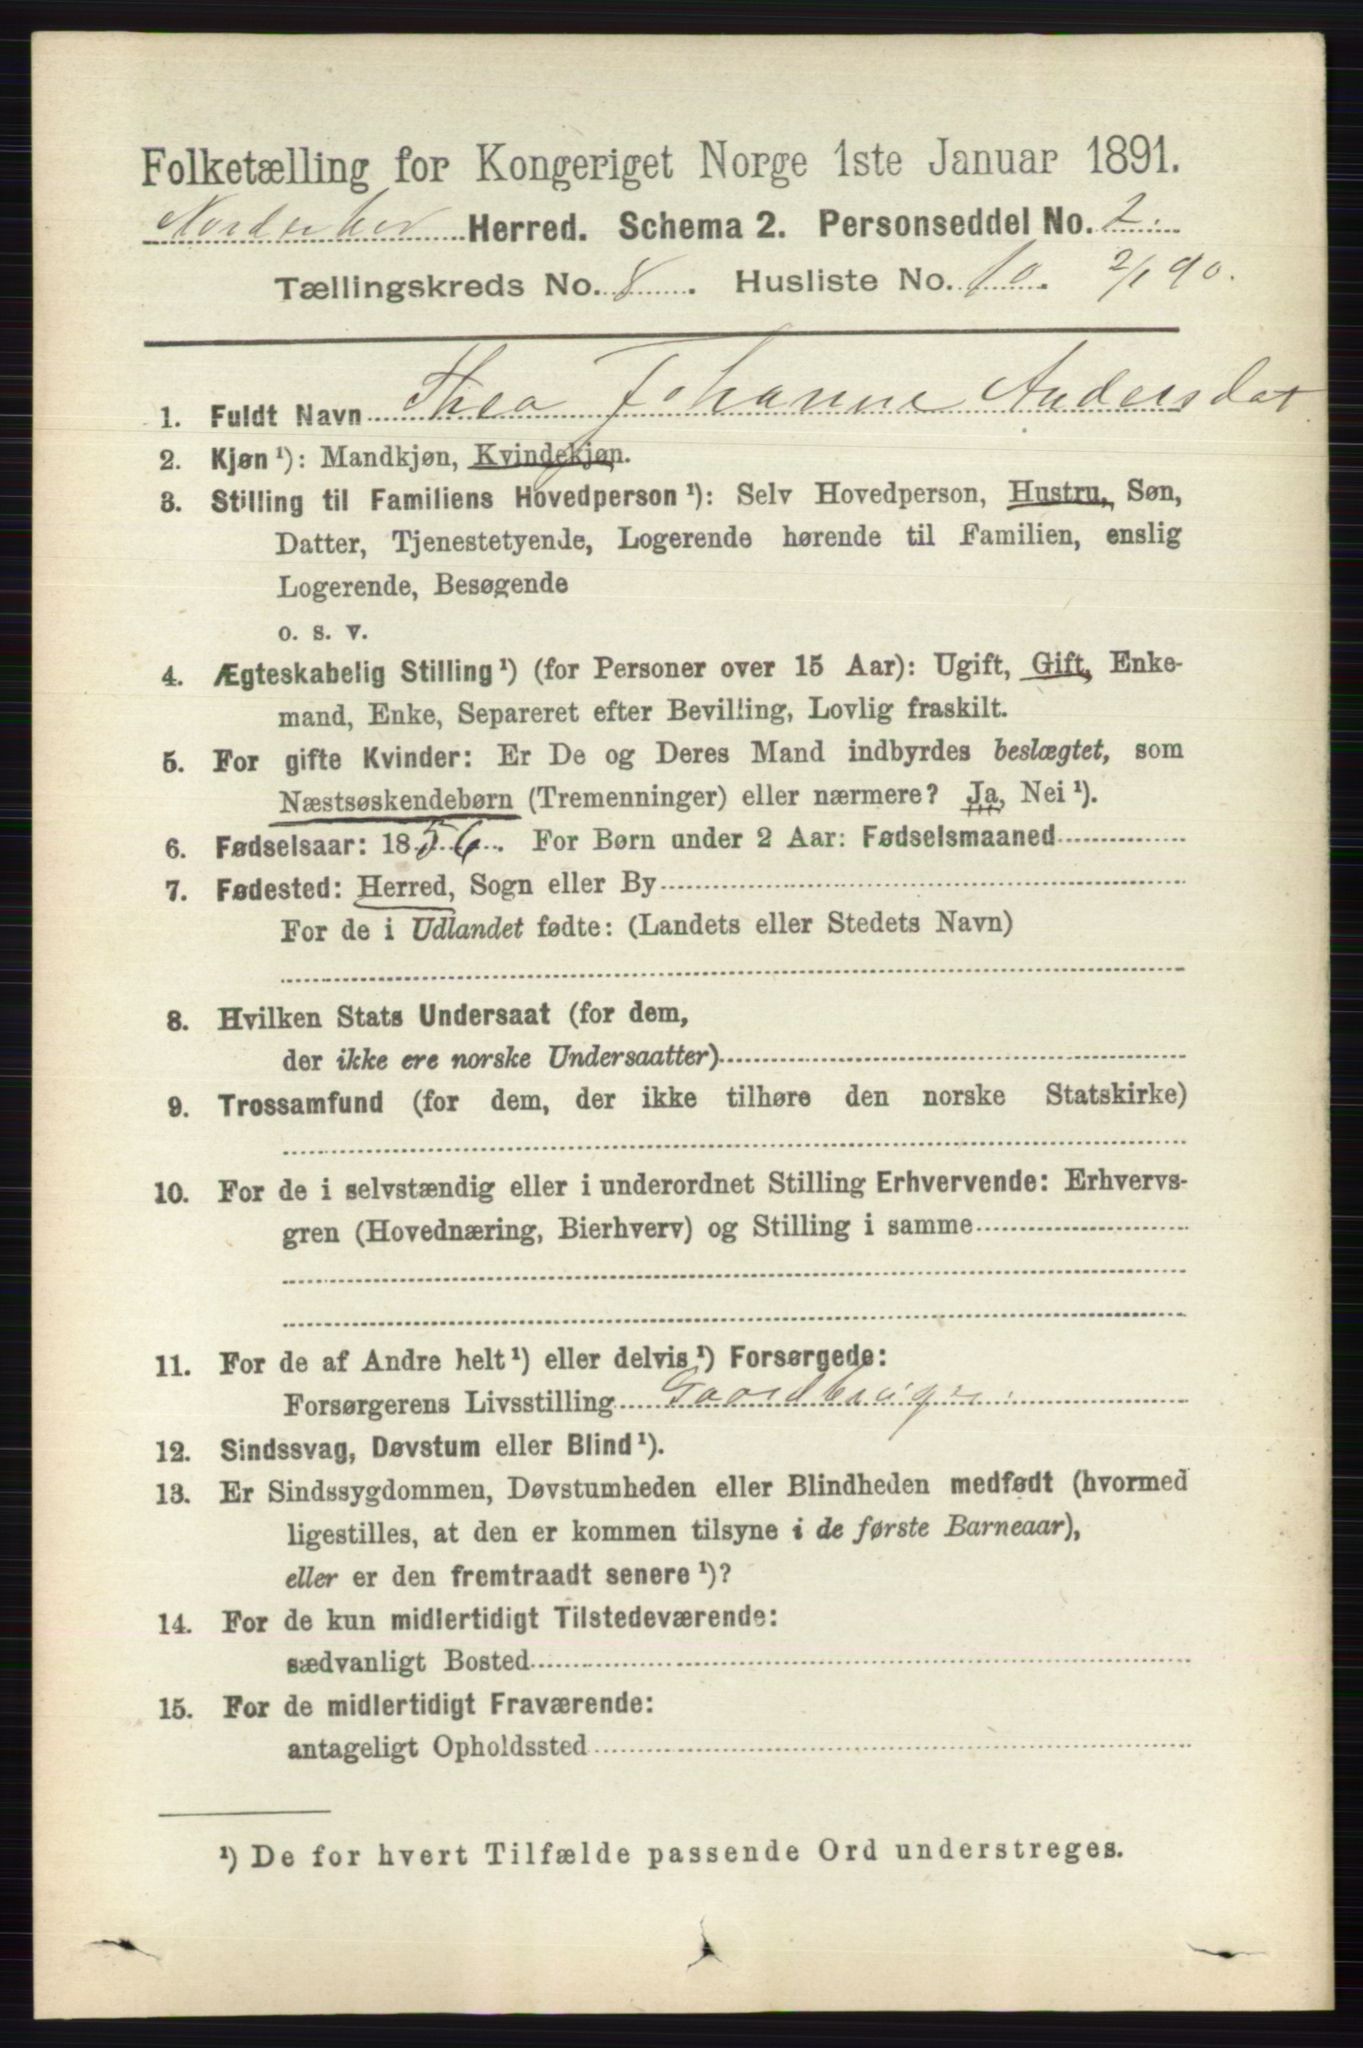 Folketælling for Kongeriget Norge 1ste Januar 1891.
Norderhov Herred. Schema 2. Personseddel No. 2.
Tællingskreds No. 8. Husliste No. 10. 2/1 90.
1. Fuldt Navn Thea Johanne Andersdat
2. Kjøn ¹): Mandkjøn, Kvindekjøn.
3. Stilling til Familiens Hovedperson ¹): Selv Hovedperson, Hustru, Søn,
Datter, Tjenestetyende, Logerende hørende til Familien, enslig
Logerende, Besøgende
o. s. v.
4. Ægteskabelig Stilling ¹) (for Personer over 15 Aar): Ugift, Gift, Enke-
mand, Enke, Separeret efter Bevilling, Lovlig fraskilt.
5. For gifte Kvinder: Er De og Deres Mand indbyrdes beslægtet, som
Næstsøskendebørn (Tremenninger) eller nærmere? Ja, Nei ¹).
6. Fødselsaar: 1856. For Børn under 2 Aar: Fødselsmaaned
7. Fødested: Herred, Sogn eller By
For de i Udlandet fødte: (Landets eller Stedets Navn)
8. Hvilken Stats Undersaat (for dem,
der ikke ere norske Undersaatter)
9. Trossamfund (for dem, der ikke tilhøre den norske Statskirke)
10. For de i selvstændig eller i underordnet Stilling Erhvervende: Erhvervs-
gren (Hovednæring, Bierhverv) og Stilling i samme
11. For de af Andre helt ¹) eller delvis ¹) Forsørgede:
Forsørgerens Livsstilling Gaardbruger
12. Sindssvag, Døvstum eller Blind ¹).
13. Er Sindssygdommen, Døvstumheden eller Blindheden medfødt (hvormed
ligestilles, at den er kommen tilsyne i de første Barneaar),
eller er den fremtraadt senere ¹)?
14. For de kun midlertidigt Tilstedeværende:
sædvanligt Bosted
15. For de midlertidigt Fraværende:
antageligt Opholdssted
¹) De for hvert Tilfælde passende Ord understreges.